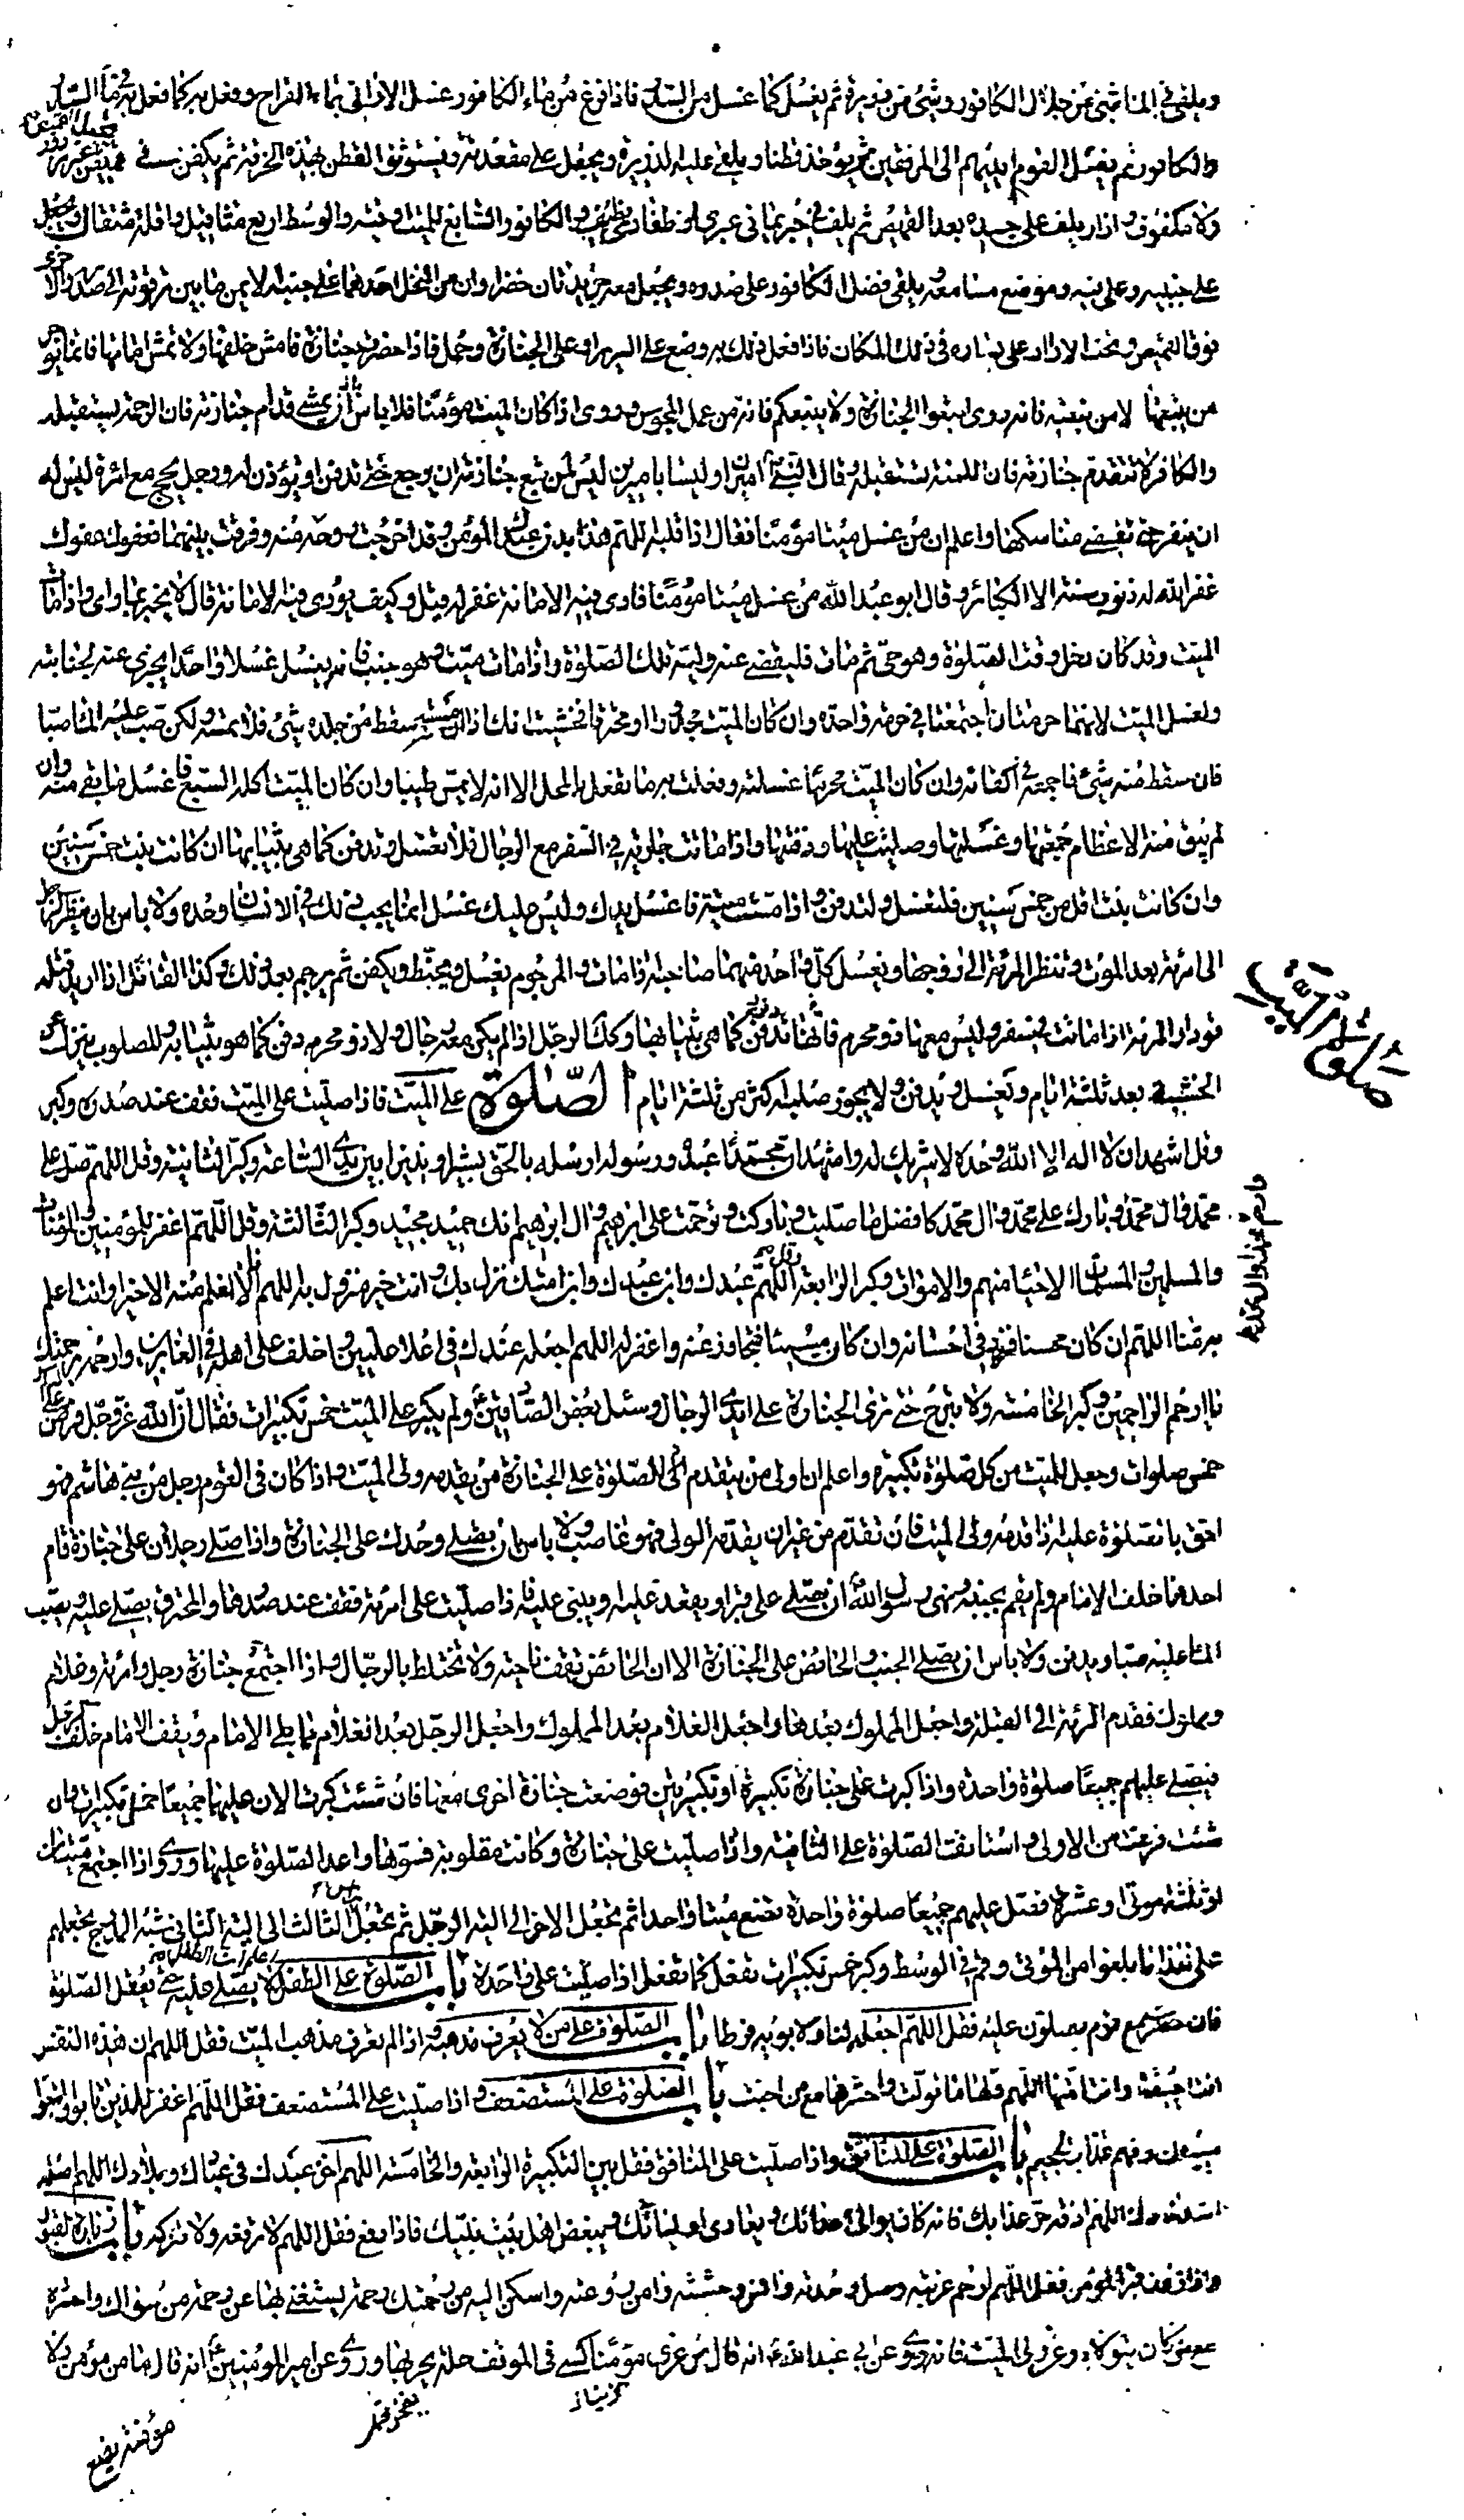 ويلقى في الماء شئ من جلال الكافور وشئ من ذريرة ثم يغسل كما غسل من السدر فاذا فرغ من ماء الكافور غسل الاناء الى بماء القراح وفعل به كما فعل بماء السدر
والكافور ثم يغسل القوم ايديهم الى المرفقين ثم يؤخذ قطنا ويلقى عليه الذريرة ويجعل على مقعدته ويستوثق القطن بهذه الخرقة ثم يكفن في قميص غير مزرور
ولا مكفوف وازار يلف على جسده بعد القميص ثم يلف في حبر يماني عبري او ظفاري نظيف والكافور السابغ للميت اوقيته والوسط اربع مثاقيل واقله مثقال ويجعل
على جبينه وعلى فيه وموضع مسامعه يلقى فضل الكافور على صدره ويجعل معه جريدتان خضراوان من النخل احدهما على جنبه الايمن ما بين ترقوته الى صدره والاخرى
فوق القميص وتحت الازار على يساره في ذلك المكان فاذا فعل ذلك به وضع على السرير او على الجنازة وحمل فاذا حضرت جنازة فامش خلفها ولا تمش امامها فانما يؤجر
من يتبعها لا من تتبعه فانه روى اتبعوا الجنازة ولا يتبعكم فانه من عمل المجوس وروى اذا كان الميت مؤمنا فلا باس ان يمشي قدام جنازته فان الرحمة يستقبله
والكافر لا تتقدم جنازته فان اللعنة تستقبله وقال النبي اميران وليسا باميرين ليس لمن تبع جنازة ان يرجع حتى تدفن او يؤذن له ورجل يحج مع امرئة ليس له
ان ينفر حتى تقضى مناسكها واعلم ان من غسل ميتا مؤمنا فقال اذا قلبه اللهم هذا بدن عبدك المؤمن وقد اخرجت روحه منه وفرقت بينهما فعفوك عفوك
غفر الله له ذنوب سنة الا الكبائر وقال ابو عبد الله من غسل ميتا مؤمنا فادى فيه الامانة غفر له قيل وكيف يؤدى فيه الامانة قال لا يخبر بما راى واذا مات
الميت وقد كان دخل وقت الصلوة وهو حي ثم مات فليقض عنه وليه تلك الصلوة واذا مات ميت وهو جنب فانه يغسل غسلا واحدا يجزى عنه لجنابته
ولغسل الميت لانهما حرمتان اجتمعتا في حرمة واحدة وان كان الميت مجدورا او محترقا فخشيت انك اذا مسسته سقط من جلده شئ فلا تمسه ولكن صب عليه الماء صبا
فان سقط منه شئ فاجمعه في اكفانه وان كان الميت محرما غسلته وفعلت به ما تفعل بالمحل الا انه لا يمس طيبا وان كان الميت اكله السبع فاغسل ما بقى منه وان
لم يبق منه الا عظام جمعتها وغسلتها وصليت عليها ودفنتها واذا ماتت جارية في السفر مع الرجال فلا تغسل وتدفن كما هي بثيابها ان كانت بنت خمس سنين
وان كانت بنت اقل من خمس سنين فلتغسل ولتدفن واذا مسست ميتة فاغسل يدك وليس عليك غسل انما يجب ذلك في الانسان وحده ولا باس بان ينظر الرجل
الى امرئته بعد الموت وتنظر المرئة الى زوجها ويغسل كل واحد منهما صاحبه اذا مات والمرجوم يغسل ويحنط ويكفن ثم يرجم بعد ذلك وكذا القاتل اذا اريد قتله
قودا والمرئة اذا ماتت في سفر وليس معها ذو محرم فانها تدفن كما هي بثيابها وكذلك الرجل اذا لم يكن معه رجال ولا ذو محرم دفن كما هو بثيابه والمصلوب ينزل عن
الخشبة بعد ثلثة ايام ويغسل ويدفن ولا يجوز صلبه اكثر من ثلثة ايام الصلوة على الميت فاذا صليت على الميت فقف عند صدره وكبر
وقل اشهد ان لا اله الا الله وحده لا شريك له واشهد ان محمدا عبده ورسوله ارسله بالحق بشيرا ونذيرا بين يدي الساعة وكبر الثانية وقل اللهم صل على
محمد وال محمد وبارك على محمد وال محمد كافضل ما صليت وباركت وترحمت على ابرهيم وال ابرهيم انك حميد مجيد وكبر الثالثة وقل اللهم اغفر للمؤمنين والمؤمنات
والمسلمين والمسلمات الاحياء منهم والاموات وكبر الرابعة وقل اللهم عبدك وابن عبدك وابن امتك نزل بك وانت خير منزول به اللهم انا لا نعلم منه الا خيرا وانت اعلم
به منا اللهم ان كان محسنا فزد في احسانه وان كان مسيئا فتجاوز عنه واغفر له اللهم اجعله عندك في اعلا عليين واخلف على اهله في الغابرين وارحمه برحمتك
يا ارحم الراحمين وكبر الخامسة ولا تبرح حتى ترى الجنازة على ايدي الرجال وسئل بعض الصادقين لم يكبر على الميت خمس تكبيرات فقال ان الله عز وجل فرض
خمس صلوات وجعل للميت من كل صلوة تكبيرة واعلم ان اولى من يتقدم للصلوة على الجنازة من يقدمه ولى الميت واذا كان في القوم رجل من بني هاشم فهو
احق بالصلوة عليه اذا قدمه ولى الميت فان تقدم من غير ان يقدمه الولى فهو غاصب ولا باس ان تصلى وحدك على الجنازة واذا صلى رجلان على جنازة قام
احدهما خلف الامام ولم يقم بجنبه ونهى رسول الله ان يصلى على قبر او يقعد عليه او يبنى عليه فاذا صليت على امرئة فقف عند صدرها والمحترق يصلى عليه ويصب
الماء عليه صبا ويدفن ولا باس ان يصلى الجنب والحائض على الجنازة الا ان الحائض تقف ناحية ولا تختلط بالرجال واذا اجتمع جنازة رجل وامرئة وغلام
ومملوك فقدم المرئة الى القبلة واجعل المملوك بعدها واجعل الغلام بعد المملوك واجعل الرجل بعد الغلام مما يلى الامام ويقف الامام خلف الرجل
فيصلى عليهم جميعا صلوة واحدة واذا كبرت على جنازة تكبيرة او تكبيرتين فوضعت جنازة اخرى معها فان شئت كبرت الان عليهما جميعا خمس تكبيرات وان
شئت فرغت من الاولى واستانفت الصلوة على الثانية واذا صليت على جنازة وكانت مقلوبة فسوها واعد الصلوة عليها وروى اذا اجتمع ميتان
او ثلثة موتى او عشرة فصل عليهم جميعا صلوة واحدة تضع ميتا واحدا ثم تجعل الاخر الى الية الرجل ثم تجعل الثالث الى الية الثاني شبه المدرج تجعلهم
على هذا ما بلغوا من الموتى وقم في الوسط وكبر خمس تكبيرات تفعل كما تفعل اذا صليت على واحدة باب الصلوة على الطفل لا يصلى عليه حتى يعقل الصلوة
فان حضر مع قوم يصلون عليه فقل اللهم اجعله لنا ولابويه فرطا باب الصلوة على من لا يعرف مذهبه اذا لم تعرف مذهب الميت فقل اللهم ان هذه النفس
انت احييتها وانت امتها اللهم ولها ما تولت واحشرها مع من احبت باب الصلوة على المستضعف واذا صليت على المستضعف فقل اللهم اغفر للذين تابوا واتبعوا
سبيلك وقهم عذاب الجحيم باب الصلوة على المنافق واذا صليت على المنافق فقل بين التكبيرة الرابعة والخامسة اللهم اخز عبدك في عبادك وبلادك اللهم اصله
اشد نارك اللهم اذقه حر عذابك فانه كان يوالي اعدائك ويعادى اوليائك ويبغض اهل بيت نبيك فاذا رفع فقل اللهم لا ترفعه ولا تزكه باب زيارة القبور
واذا زرت قبر المؤمن فقل اللهم ارحم غربته وصل وحدته وانس وحشته وامن روعته واسكن اليه من رحمتك رحمة يستغني بها عن رحمة من سواك واحشره
مع من كان يتولاه وعز ولى الميت فانه روى عن ابي عبد الله انه قال من عزى مؤمنا كسى في الموقف حلة يحبر بها وروى عن امير المؤمنين انه قال ما من مؤمن ولا